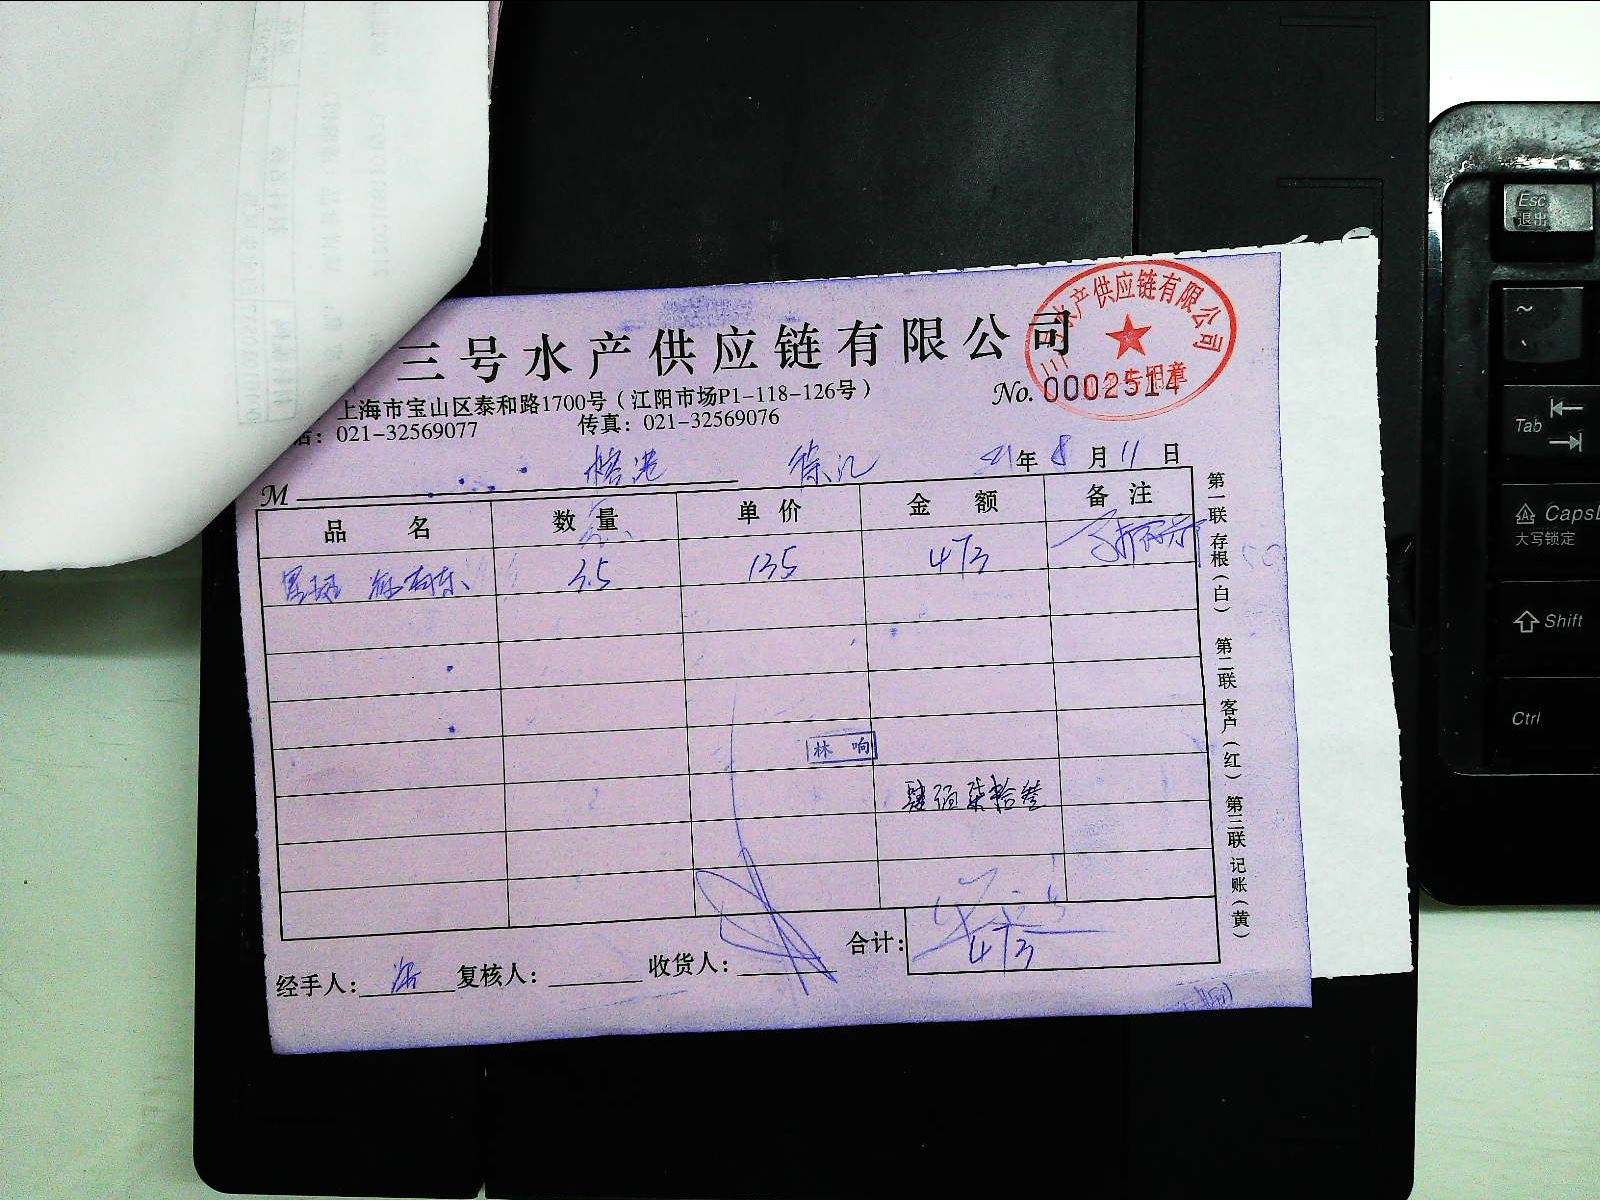 三号水产供应链有限公司
水产供应链有限公司
专用章
上海市宝山区泰和路1700号（江阳市场P1-118-126号）
No. 0002514
话：021-32569077 传真：021-32569076
M 榕港 徐汇 21年8月11日
品名 数量 单价 金额 备注
3.5 135 473
林响
肆佰柒拾叁
合计：473
经手人： 复核人： 收货人：
第一联存根（白） 第二联客户（红） 第三联记账（黄）
Esc
退出
~
Tab
Caps
大写锁定
Shift
Ctrl